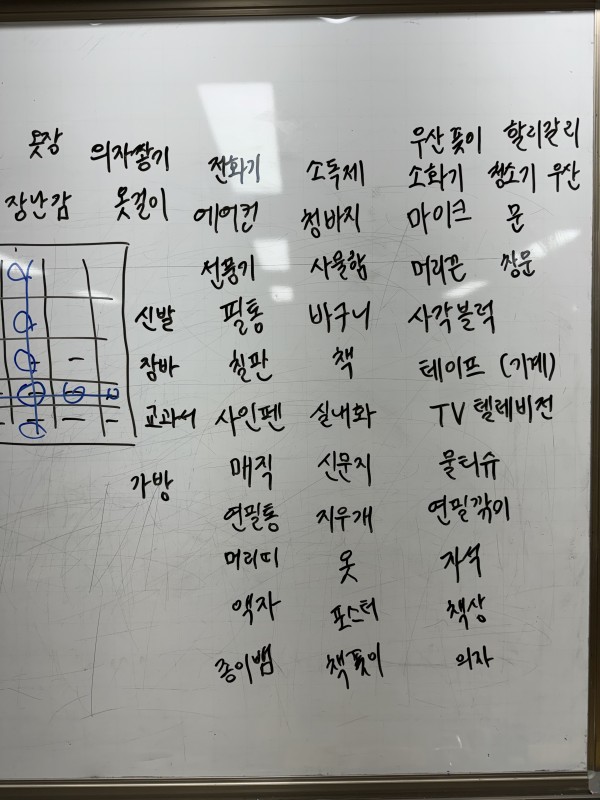 옷장 의자쌓기 전화기 소독제 우산꽂이 할리갈리
소화기 청소기 우산
장난감 옷걸이 에어컨 청바지 마이크 문
선풍기 사물함 머리끈 창문
신발 필통 바구니 사각블럭
잠바 칠판 책 테이프 (기계)
교과서 사인펜 실내화 TV 텔레비전
가방 매직 신문지 물티슈
연필통 지우개 연필깎이
머리띠 옷 자석
액자 포스터 책상
종이뱀 책꽂이 의자